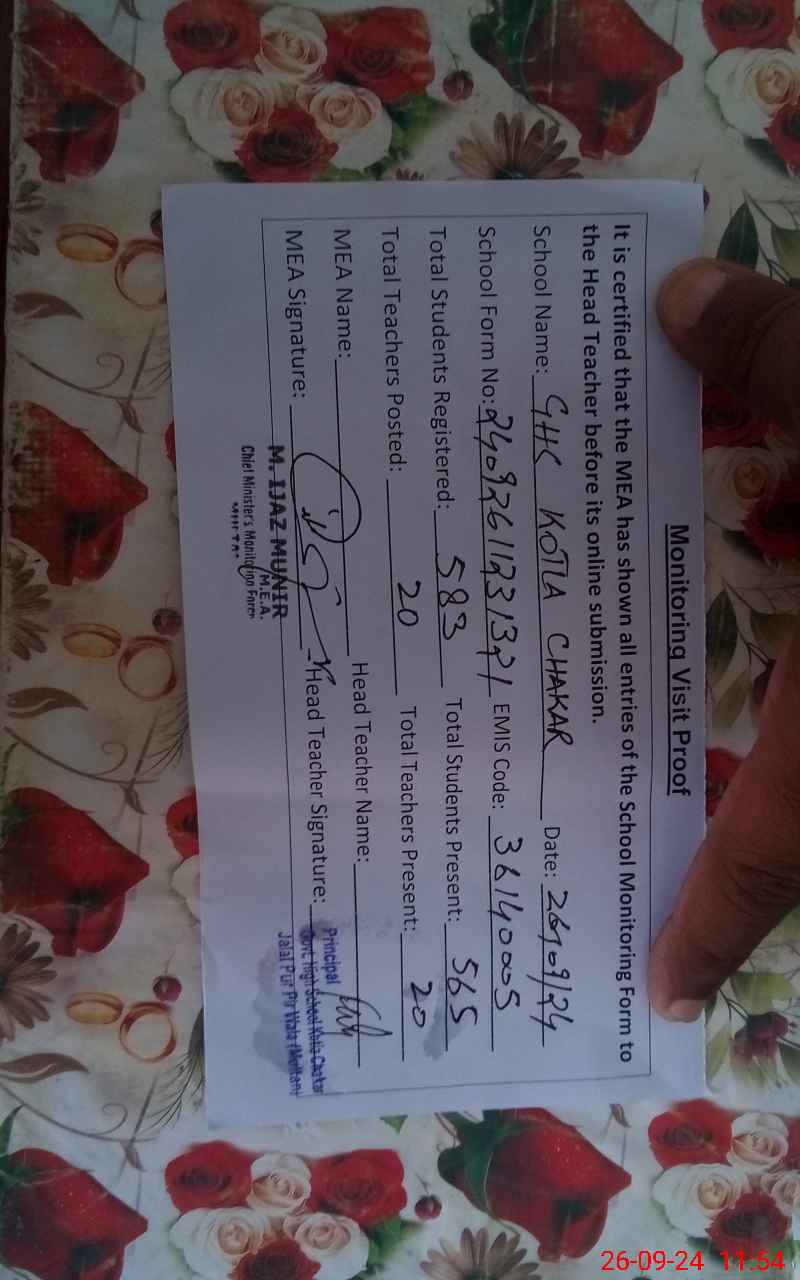 Monitoring Visit Proof
It is certified that the MEA has shown all entries of the School Monitoring Form to
the Head Teacher before its online submission.
School Name: GHS KOTLA CHAKAR Date: 26/09/24
School Form No: EMIS Code: 36140005
Total Students Registered: 583 Total Students Present: 565
Total Teachers Posted: 20 Total Teachers Present: 20
MEA Name: Head Teacher Name:
MEA Signature: Head Teacher Signature:
M. IJAZ MUNIR
M.E.A.
Chief Minister's Monitoring Force
MULTAN
Principal
Govt. High School Kotla Chakar
Jalal Pur Pir Wala (Multan)
26-09-24 11:54